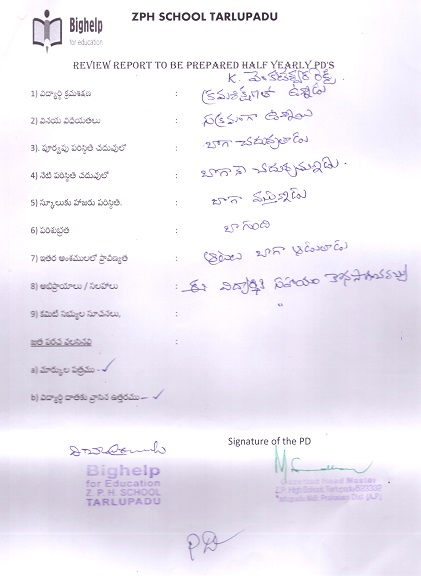 ZPH SCHOOL TARLUPADU
Bighelp
for education
REVIEW REPORT TO BE PREPARED HALF YEARLY PD'S
K. వెంకటేశ్వర రెడ్డి.
1) విద్యార్థి క్రమశిక్షణ : క్రమశిక్షణతో ఉన్నాడు
2) వినయ విధేయతలు : సక్రమంగా ఉన్నాయి
3). పూర్వపు పరిస్థితి చదువులో : బాగా చదువుతాడు
4) నేటి పరిస్థితి చదువులో : బాగానే చదువుచున్నాడు.
5) స్కూలుకు హాజరు పరిస్థితి. : బాగా వస్తున్నాడు
6) పరిశుభ్రత : బాగుంది
7) ఇతర అంశములలో ప్రావిణ్యత : ఆటలు బాగా ఆడుతాడు
8) అభిప్రాయాలు / సలహాలు : ఈ విద్యార్థికి సహాయం కొనసాగించవచ్చు
9) కమిటీ సభ్యుల సూచనలు, : "
జత పరచ వలసినవి :
a) మార్కుల పత్రము - ✓
b) విద్యార్థి దాతకు వ్రాసిన ఉత్తరము - ✓
Signature of the PD
Bighelp
for Education
Z. P. H. SCHOOL
TARLUPADU
Gazetted Head Master
Z.P. High School, Tarlupadu
PD